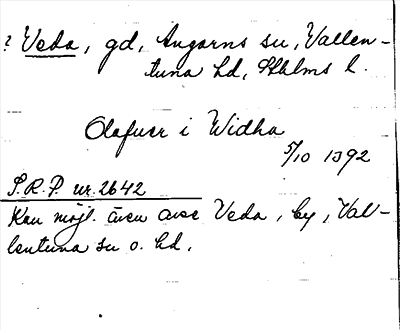 ? Veda, gd, Angarns su, Vallen-
tuna hd, Sthlms l.
Olafuer i Widha
5/10 1392
S.R.P. nr. 2642
Kan möjl. även avse Veda, by, Val-
lentuna su o. hd.